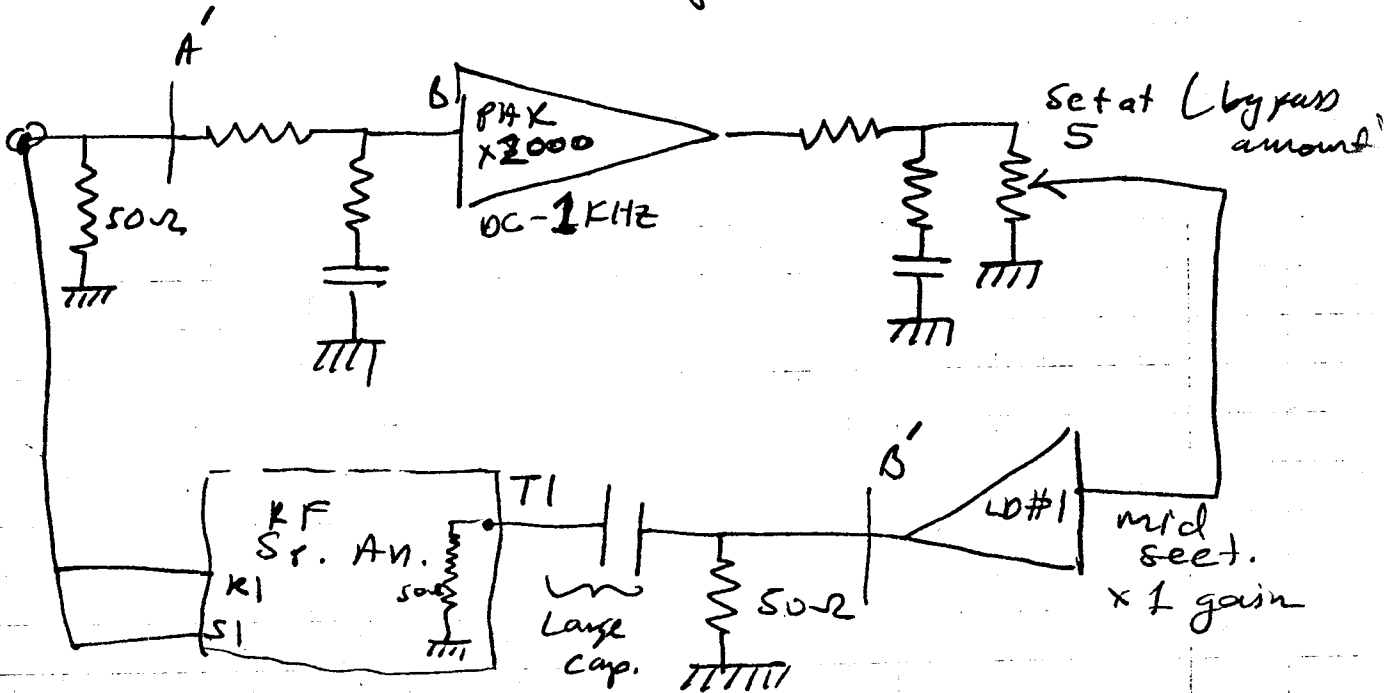 A'
50Ω
B
PAR
x2000
DC-1KHZ
Set at (bypass
5 amount"
RF
Sp. An.
50Ω
R1
S1
T1
Large
cap.
50Ω
B'
LD#1
mid
sect.
x 1 gain